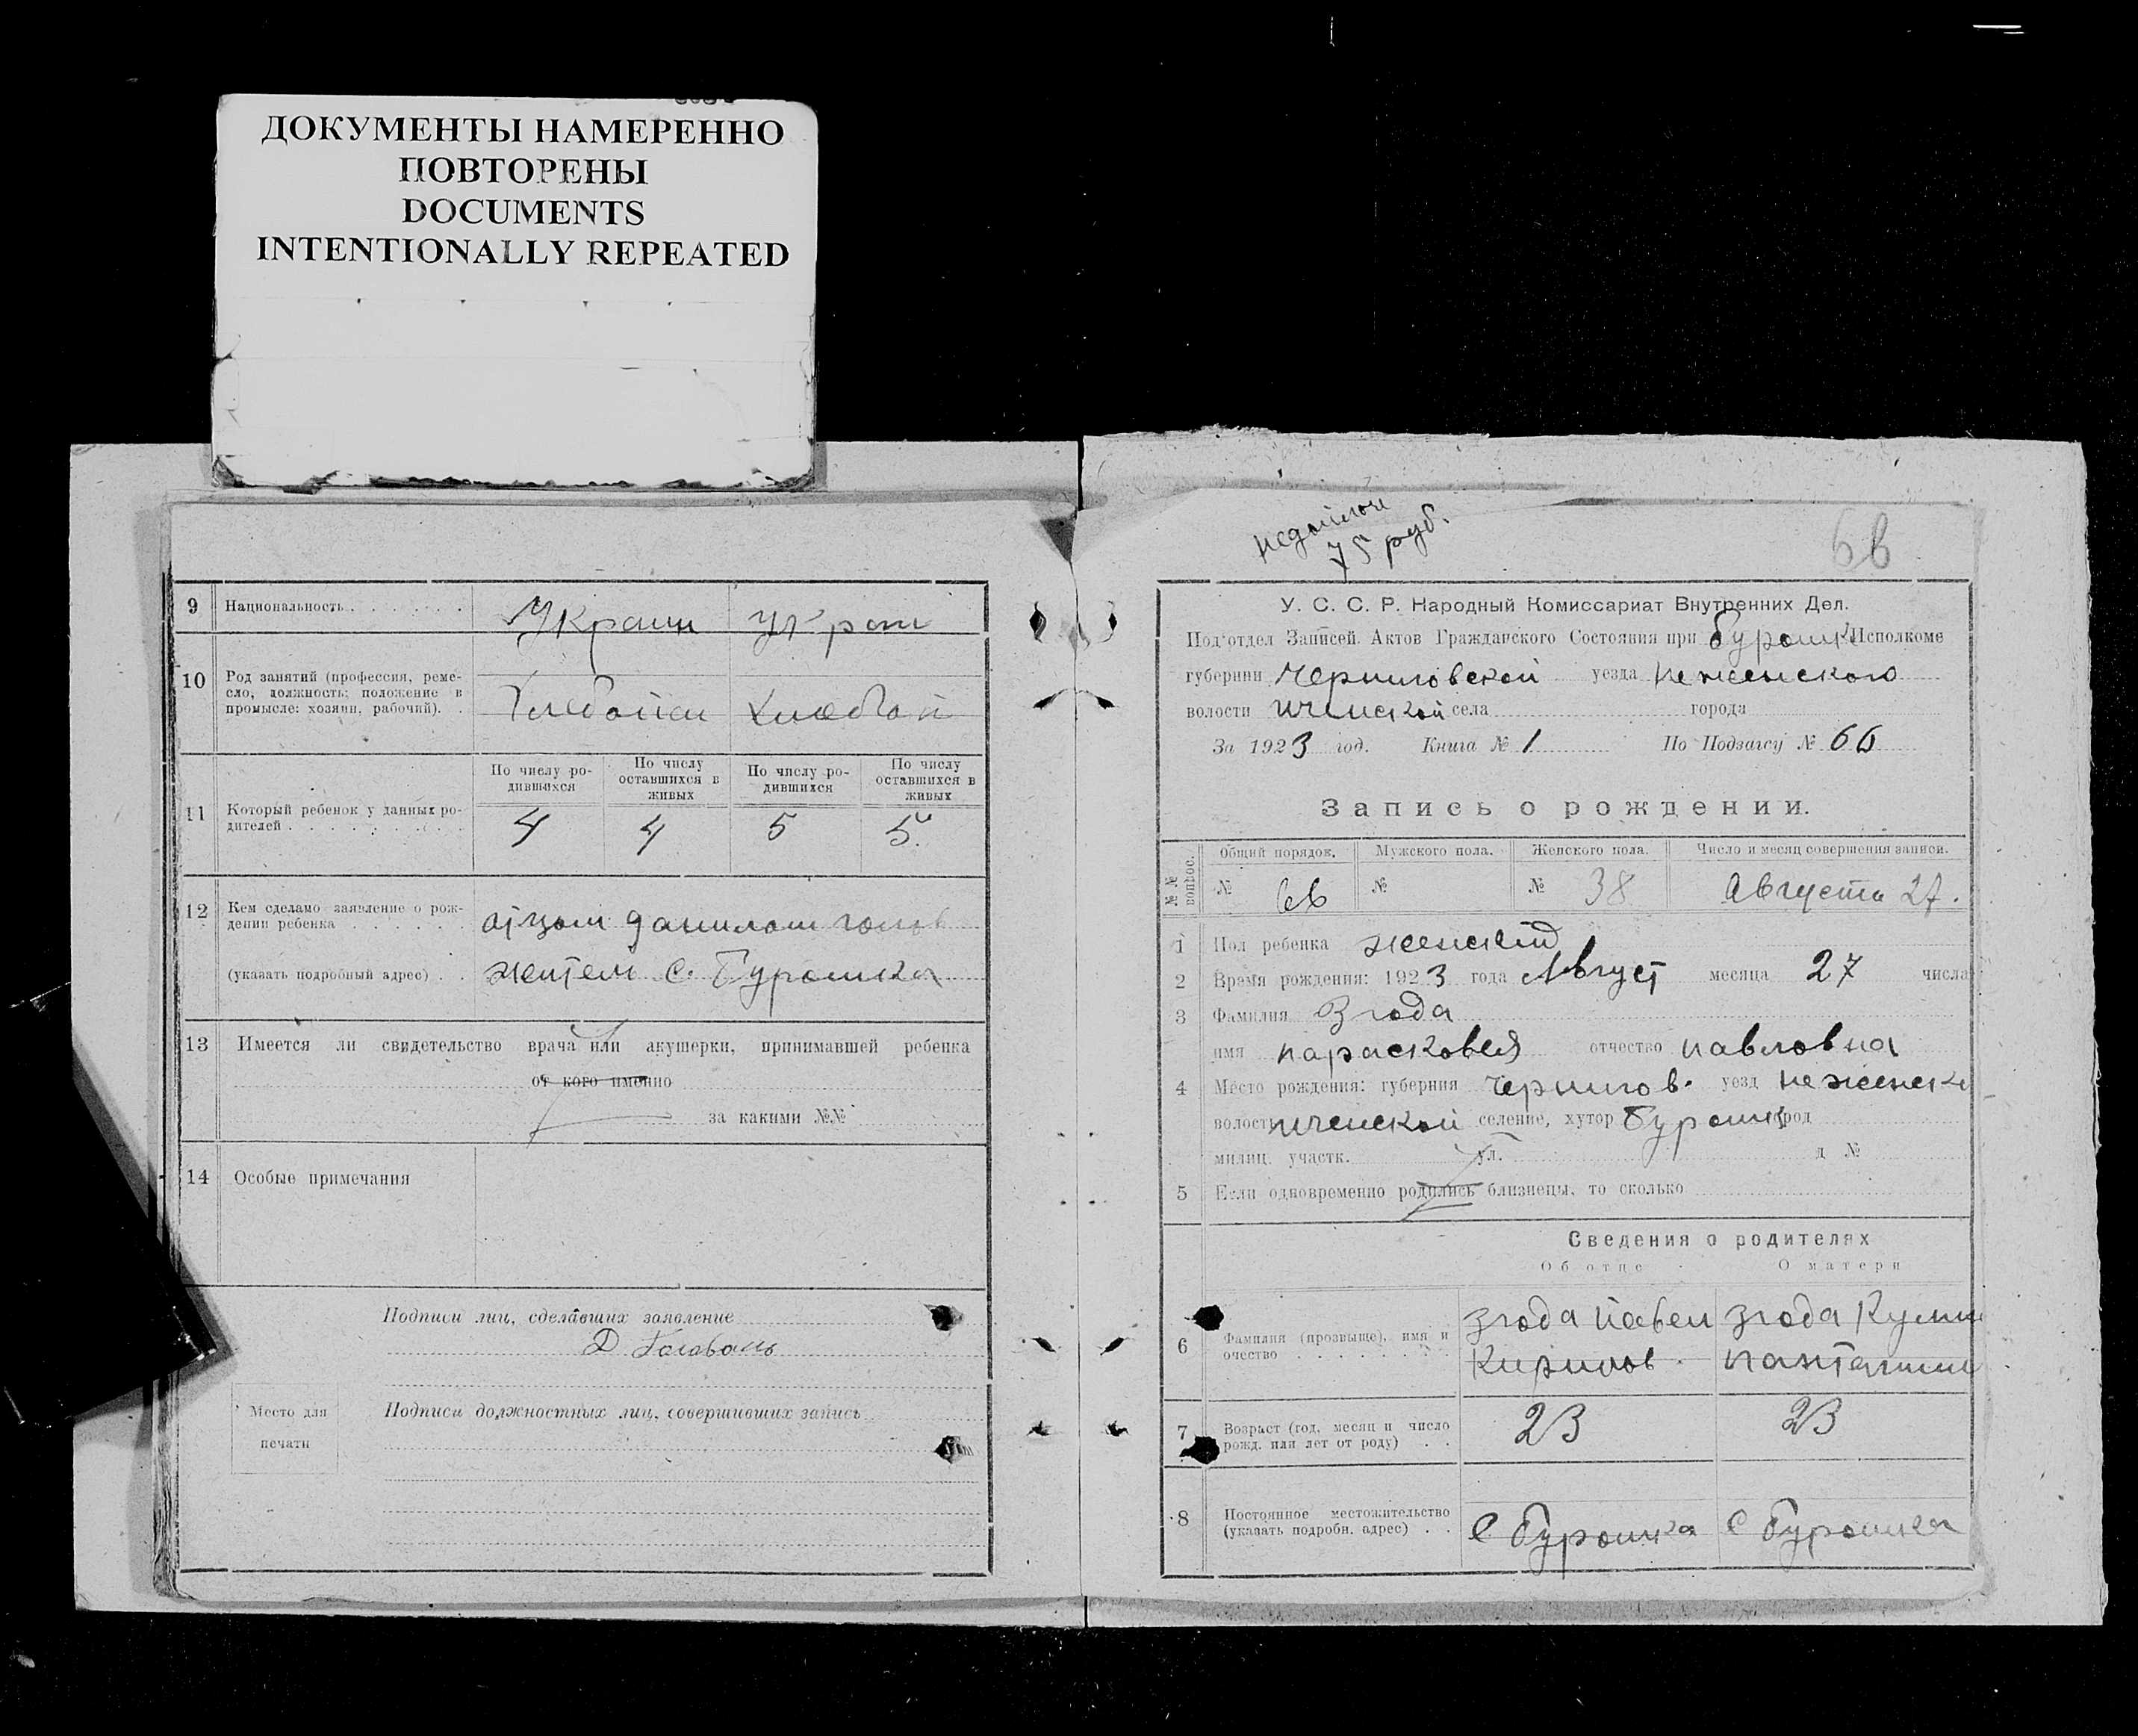 ДОКУМЕНТЫ НАМЕРЕННО
ПОВТОРЕНЫ
DOCUMENTS
INTENTIONALLY REPEATED
9 Национальность Украин укра
10 Род занятий (профессия, реме-
сло, должность; положение в
промысле: хозяин, рабочий).
По числу ро-
дившихся
По числу
оставшихся в
живых
По числу ро-
дившихся
По числу
оставшихся в
живых
11 Который ребенок у данных ро-
дителей 4 4 5 5.
12 Кем сделано заявление о рож-
дении ребенка данилом голов
(указать подробный адрес) жител с. Бурошка
13 Имеется ли свидетельство врача или акушерки, принимавшей ребенка
от кого именно
за какими №№
14 Особые примечания
Подписи лиц, сделавших заявление
Д Головань
Место для
печати
Подписи должностных лиц, совершивших запись
75 руб.
66
У. С. С. Р. Народный Комиссариат Внутренних Дел.
Под'отдел Записей Актов Гражданского Состояния при Буромк Исполкоме
губернии Черниговской уезда неженского
волости ичнской села города
За 1923 год. Книга № 1 По Подзагсу № 66
Запись о рождении.
№№ вопрос. Общий порядок. Мужского пола. Женского пола. Число и месяц совершения записи.
№ 66 № № 38 Августа 27.
1 Пол ребенка женский
2 Время рождения: 1923 года Август месяца 27 числа
3 Фамилия Згода
имя парасковея отчество павловна
4 Место рождения: губерния чернигов. уезд неженск
волость иченской селение, хутор Буромк род
милиц. участк. ул. д №
5 Если одновременно родились близнецы, то сколько
Сведения о родителях
Об отце О матери
6 Фамилия (прозвыще), имя и
очество
згода павел згода
Кирилов
7 Возраст (год, месяц и число
рожд. или лет от роду) 23 23
8 Постоянное местожительство
(указать подробн. адрес) С Буромка С Буромка